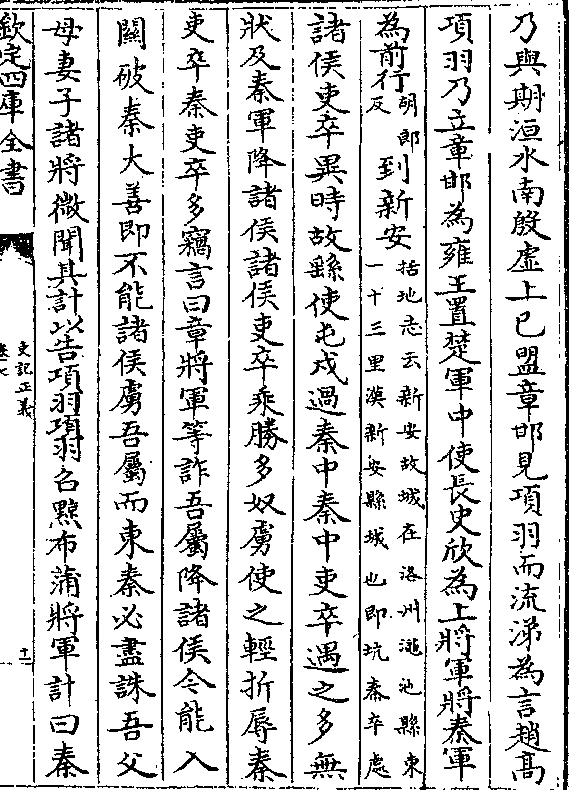 乃與期洹水南殷虚上已盟章邯見項羽而流涕為言趙髙
項羽乃立章邯為雍王置楚軍中使長史欣為上將軍將秦軍
為前行胡郎反到新安括地志云新安故城在洛州澠池縣東一十三里漢新安縣城也即坑秦卒處
諸侯吏卒異時故繇使屯戍過秦中秦中吏卒遇之多無
狀及秦軍降諸侯諸侯吏卒乘勝多奴虜使之輕折辱秦
吏卒秦吏卒多竊言曰章將軍等詐吾屬降諸侯今能入
關破秦大善即不能諸侯虜吾屬而東秦必盡誅吾父
母妻子諸將微聞其計以告項羽項羽召黥布蒲將軍計曰秦
欽定四庫全書
史記正義
卷七
十一